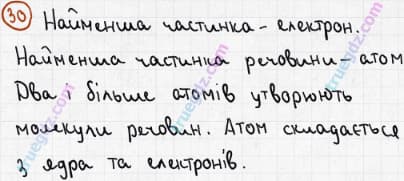 30 Найменша частинка - електрон.
Найменша частинка речовини - атом
Два і більше атомів утворюють
молекули речовин. Атом складається
з ядра та електронів.